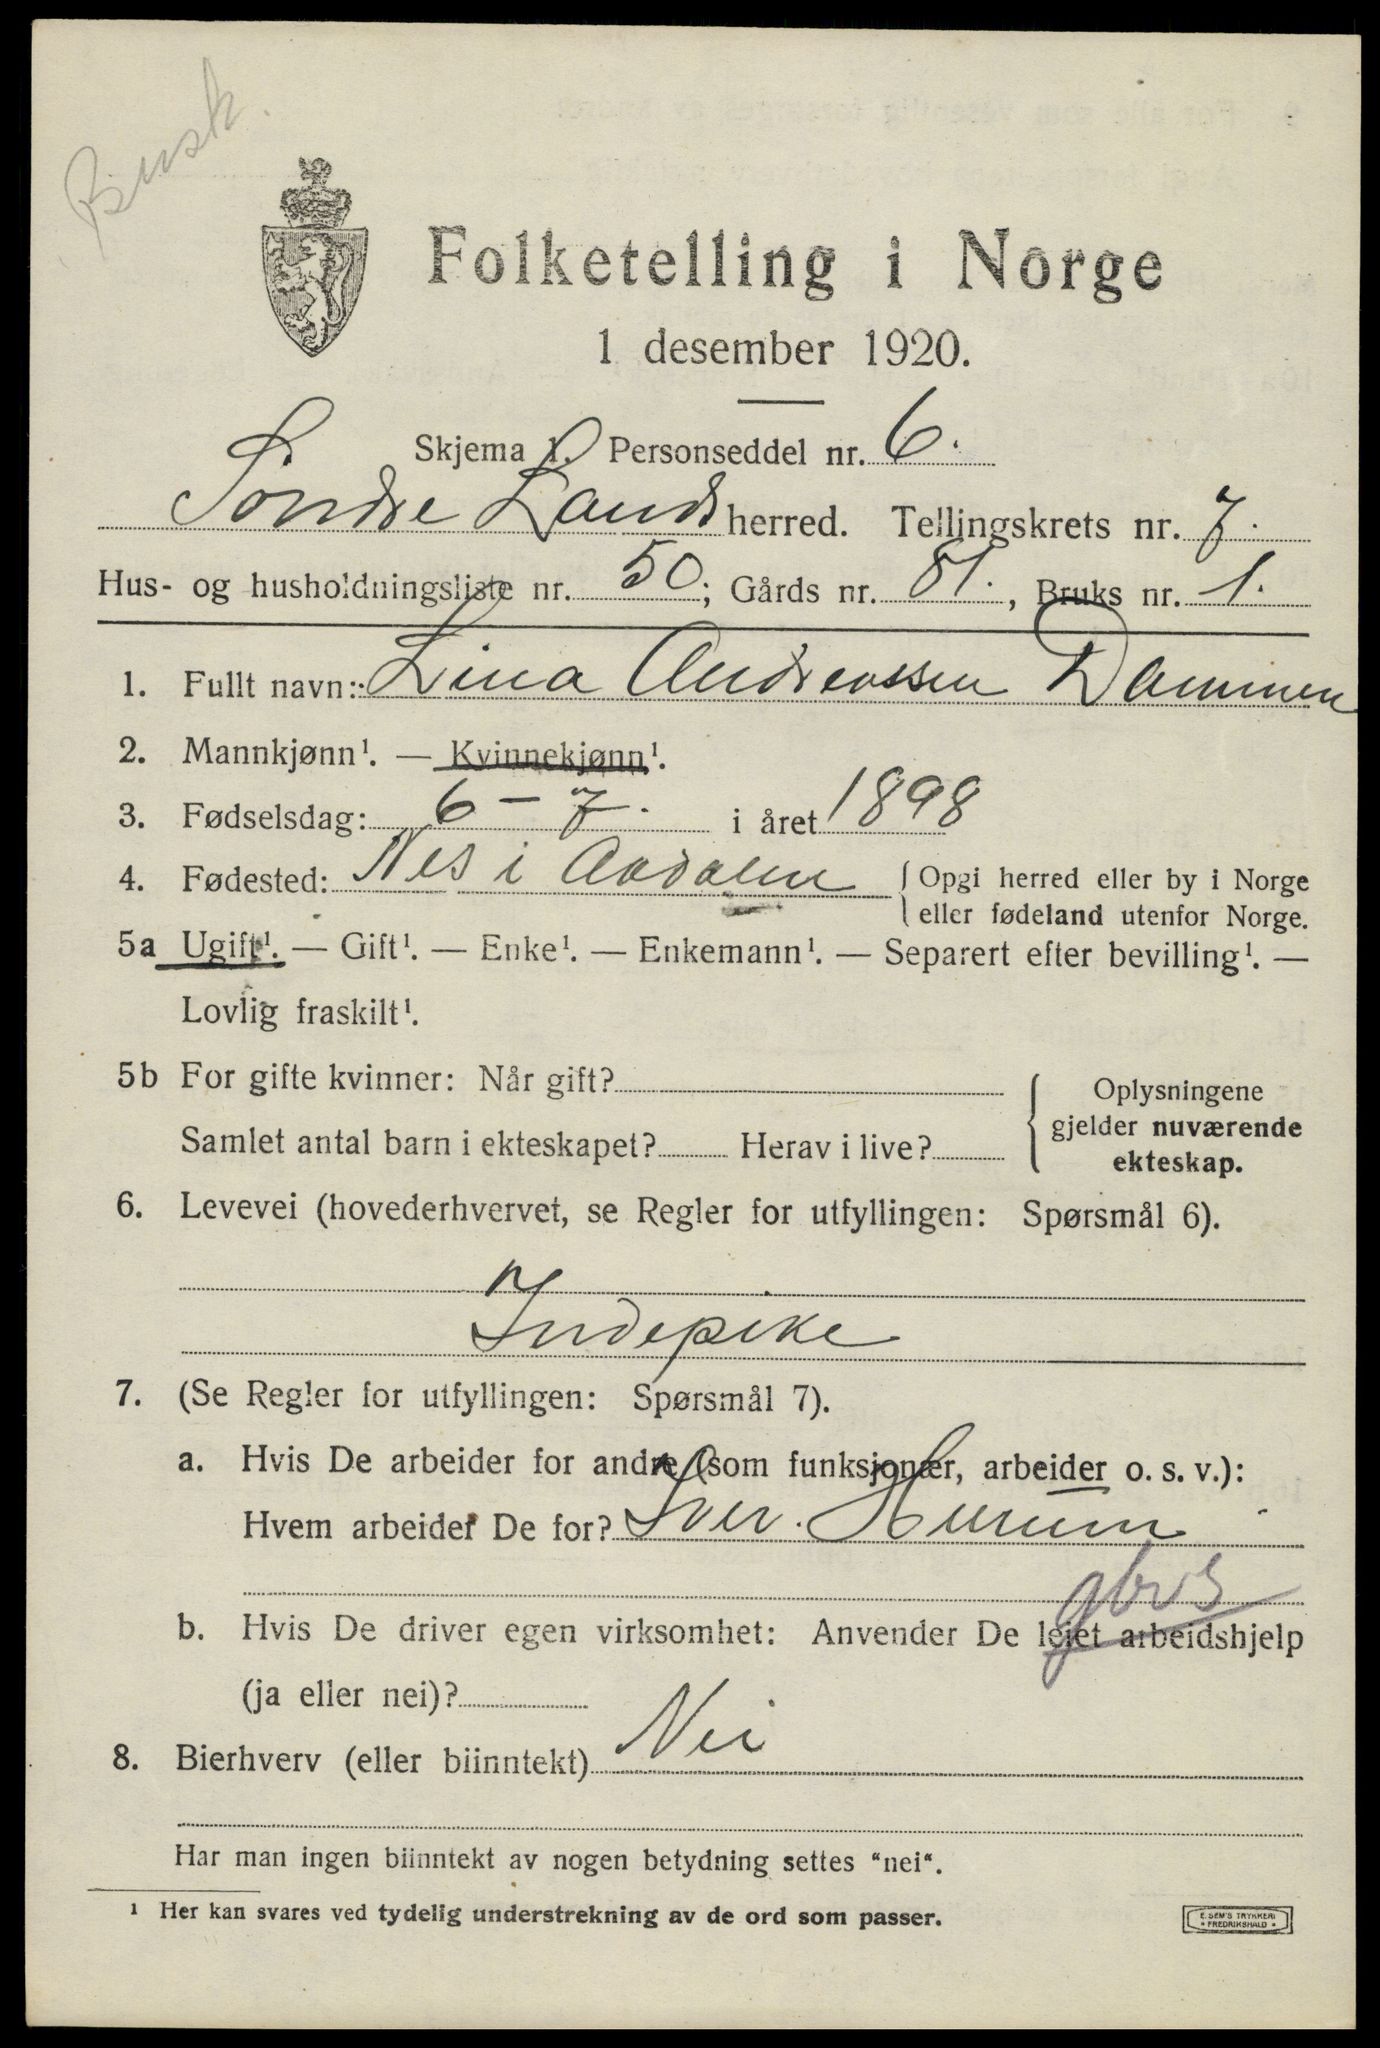 Busk.
Folketelling i Norge
1 desember 1920.
Skjema 1. Personseddel nr. 6.
Søndre Lands herred. Tellingskrets nr. 7.
Hus- og husholdningsliste nr. 50; Gårds nr. 81., Bruks nr. 1.
1. Fullt navn: Lina Andreassen Dammen
2. Mannkjønn¹. — Kvinnekjønn¹.
3. Fødselsdag: 6 - 7. i året 1898
4. Fødested: Nes i Aadalen { Opgi herred eller by i Norge
eller fødeland utenfor Norge.
5a Ugift¹. — Gift¹. — Enke¹. — Enkemann¹. — Separert efter bevilling¹. —
Lovlig fraskilt¹.
5b For gifte kvinner: Når gift?
Samlet antal barn i ekteskapet? Herav i live?
{ Oplysningene
gjelder nuværende
ekteskap.
6. Levevei (hovederhvervet, se Regler for utfyllingen: Spørsmål 6).
Indepike
7. (Se Regler for utfyllingen: Spørsmål 7).
a. Hvis De arbeider for andre (som funksjonær, arbeider o. s. v.):
Hvem arbeider De for? Iver. Hurum
gbrs
b. Hvis De driver egen virksomhet: Anvender De leiet arbeidshjelp
(ja eller nei)?
8. Bierhverv (eller biinntekt) Nei
Har man ingen biinntekt av nogen betydning settes "nei".
¹ Her kan svares ved tydelig understrekning av de ord som passer.
E. SEM'S TRYKKERI
FREDRIKSHALD